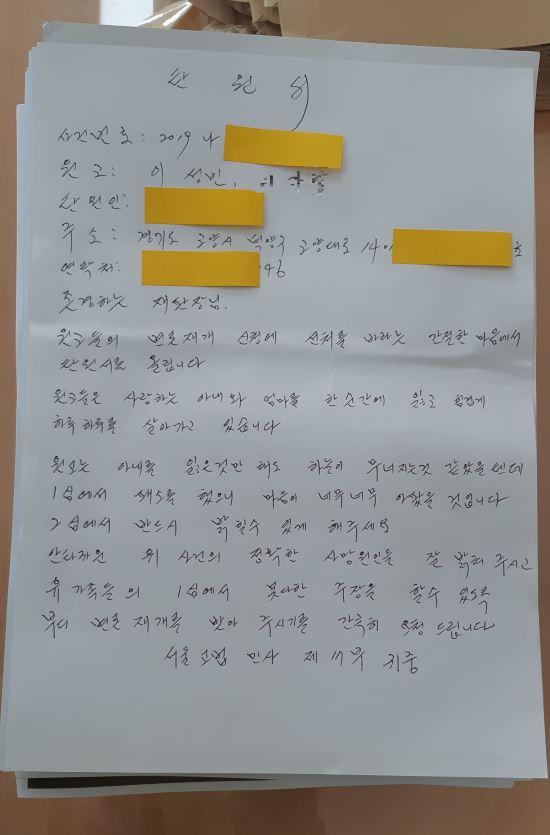 탄 원 서
사건번호: 2019 나
원 고: 이 성민,
탄원인:
주 소: 경기도 고양시 덕양구 고양대로 14 호
연락처: 46
존경하는 재판장님.
원고들의 변론재개 신청에 선처를 바라는 간절한 마음에서
탄원서를 올립니다
원고들은 사랑하는 아내와 엄마를 한순간에 잃고 힘겹게
하루하루를 살아가고 있습니다
원고는 아내를 잃은것만 해도 하늘이 무너지는것 같았을텐데
1심에서 패소를 했으니 마음이 너무너무 아팠을 것입니다
2심에서 반드시 밝힐수 있게 해주세요
안타까운 위 사건의 정확한 사망원인을 잘 밝혀 주시고
유가족들의 1심에서 못다한 주장을 할수 있도록
부디 변론재개를 받아 주시기를 간곡히 요청 드립니다
서울고법 민사 제 부 귀중